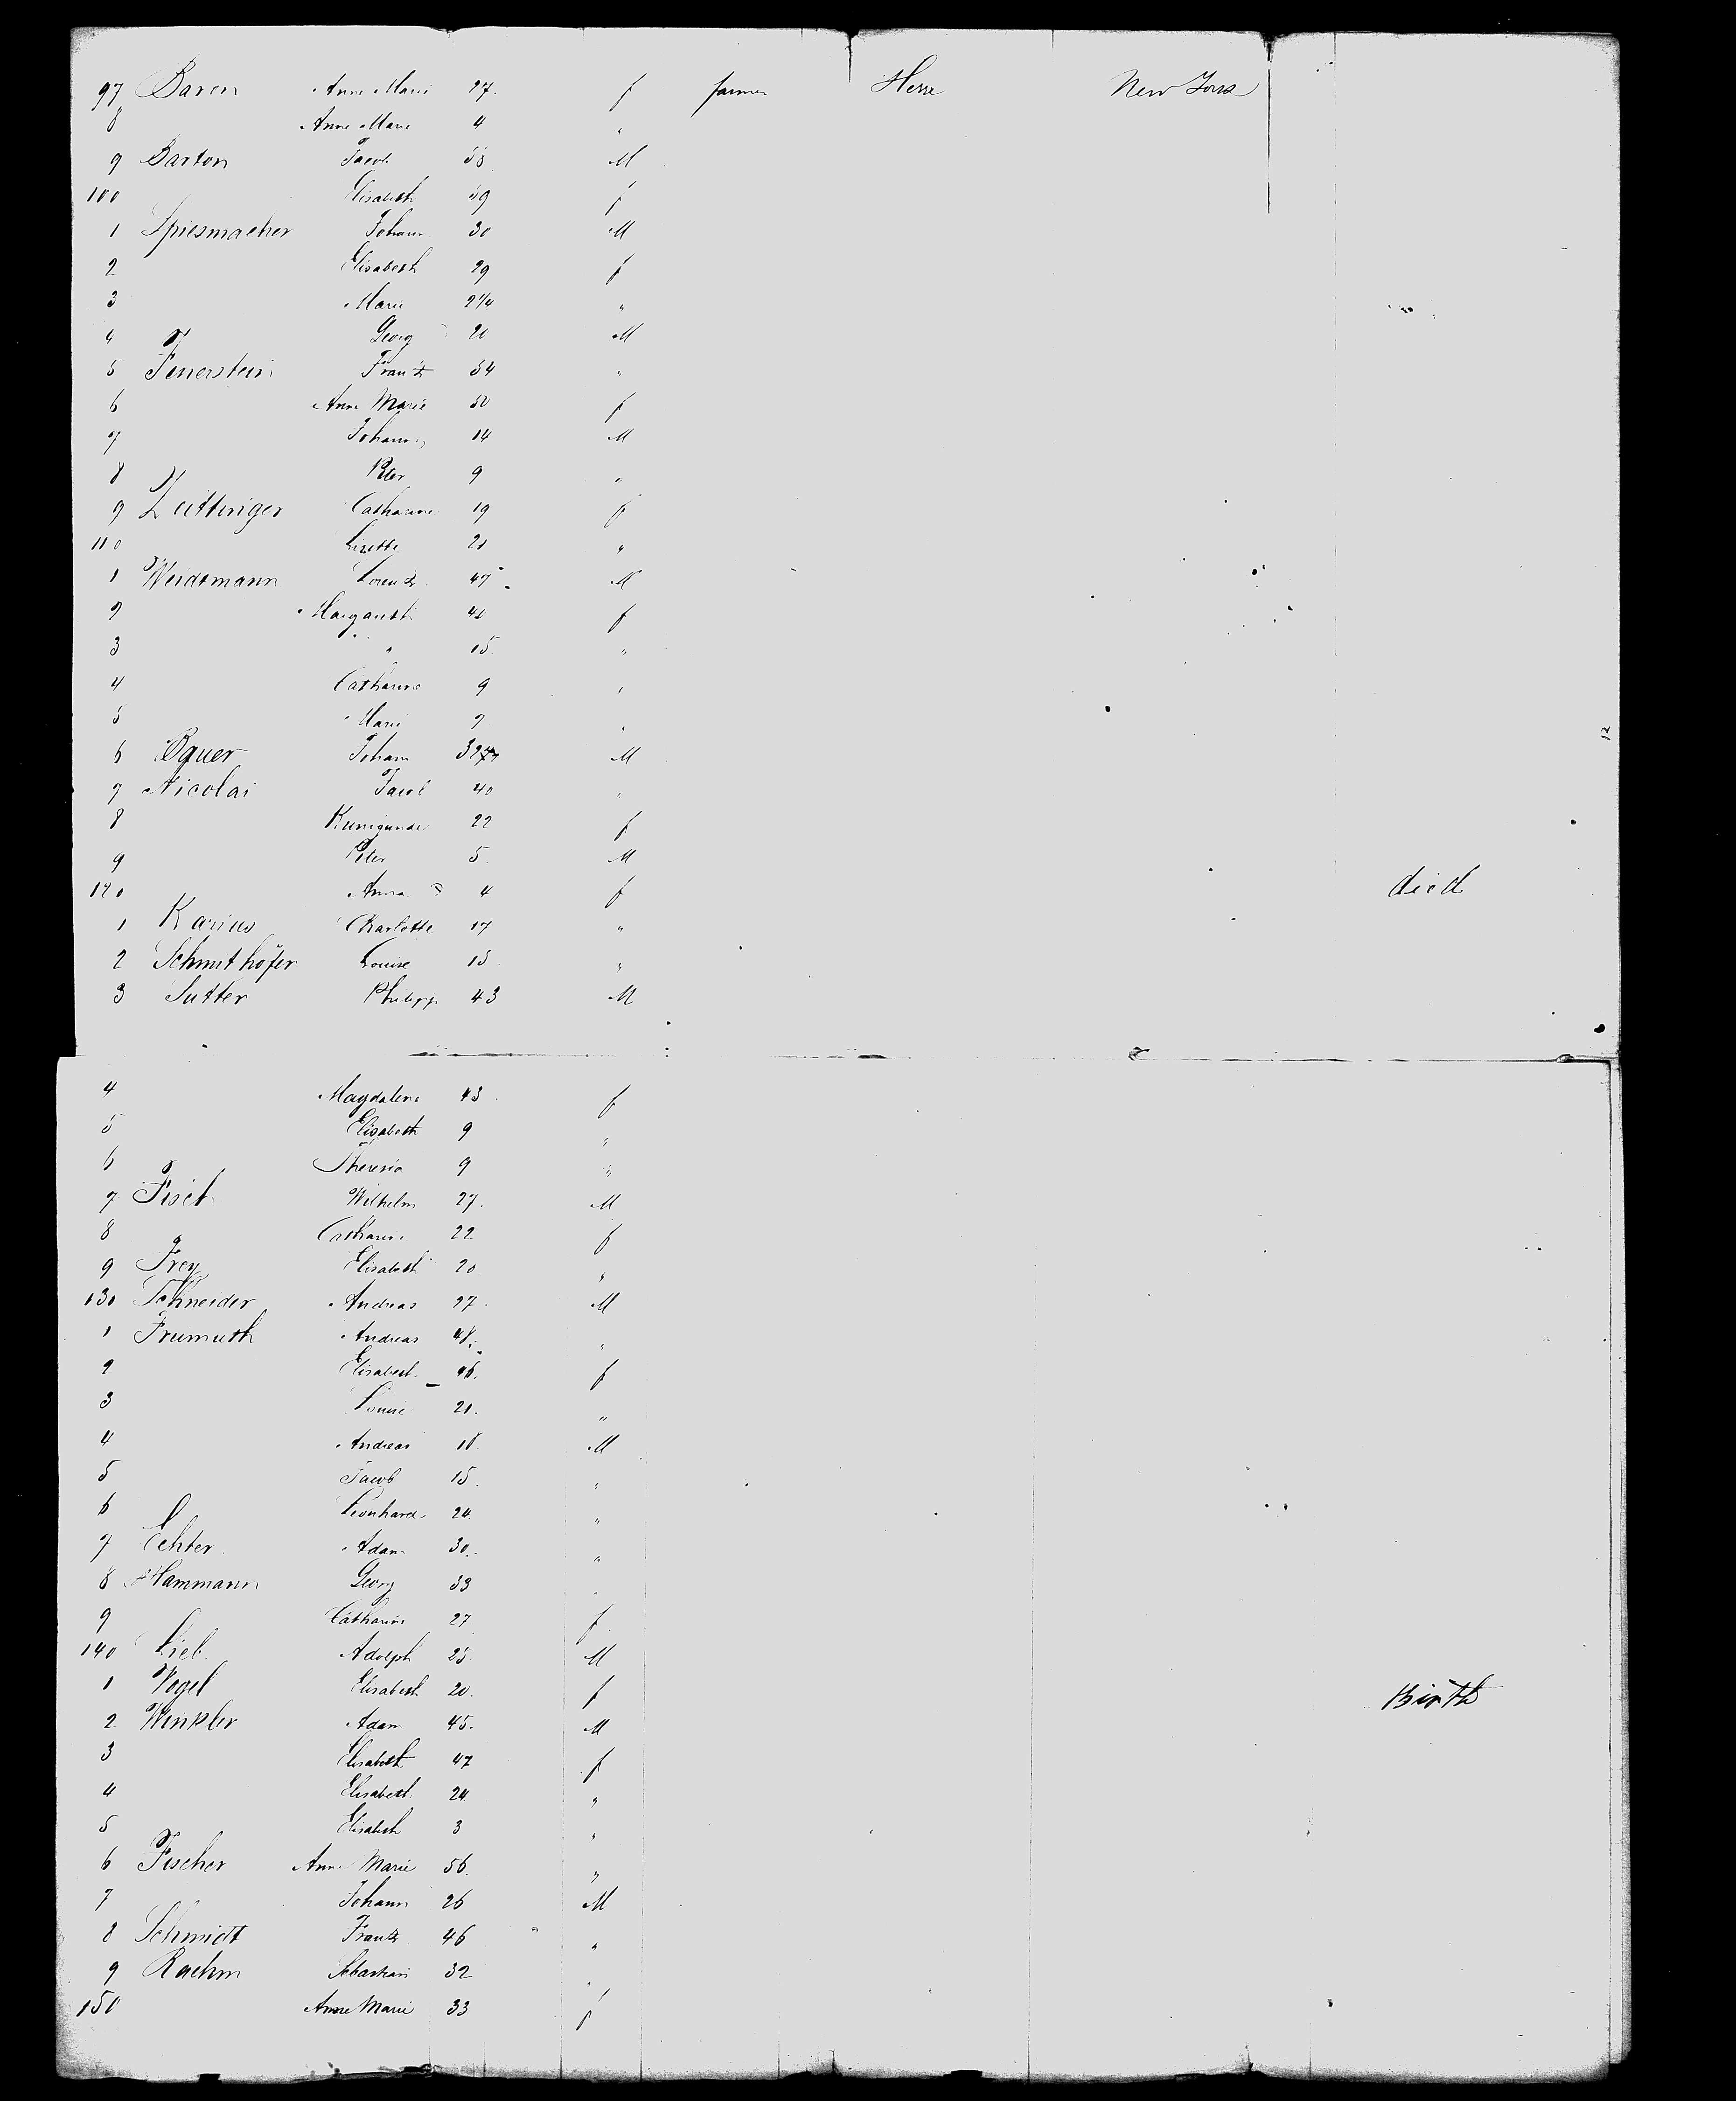 97 Baren Anne Marie 27. f farmer Hesse New York
8 Anne Marie 4 "
9 Barton Jacob M
100 Elisabeth 59 f
1 Spiesmacher Johann 30 M
2 Elisabeth 29 f
3 Marie 2 1/4 "
4 Georg 20 M
5 Feuerstein Frantz 54 "
6 Anne Marie 50 f
7 Johann 14 M
8 Peter 9 "
9 Zeittinger Catharine 19 f
110 Lisette 21 "
1 Weidemann Lorentz 47 M
2 Margareth f
3 " 15 "
4 Catharine 9 "
5 Marie "
6 Bauer Johann M
7 Nicolai Jacob 40 "
8 Kunigunde 22 f
9 Peter 5 M
120 Anna 4 f died
1 Karius Charlotte 17 "
2 Schmithöfer Louise 15 "
3 Sutter Philipp 43 M
12
4 Magdalena 43 f
5 Elisabeth 9 "
6 Theresia 9 "
7 Fisch Wilhelm 27. M
8 Catharine 22 f
9 Frey Elisabeth 20 "
130 Schneider Andreas 27 M
1 Frumuth Andreas 48 "
2 Elisabeth 46. f
3 Louise 21. "
4 Andreas 18 M
5 Jacob 15 "
6 Leonhard 24 "
7 Echter Adam 30 "
8 Hammann Georg 33 "
9 Catharine 27 f
140 Lieb Adolph 25 M
1 Vogel Elisabeth 20. f Birth
2 Winkler Adam 45. M
3 Elisabeth 47 f
4 Elisabeth 24 "
5 Elisabeth 3 "
6 Fischer Anne Marie 56. "
7 Johann 26 M
8 Schmidt Frantz 46 "
9 Rachm Sebastian 32 "
150 Anne Marie 33 f